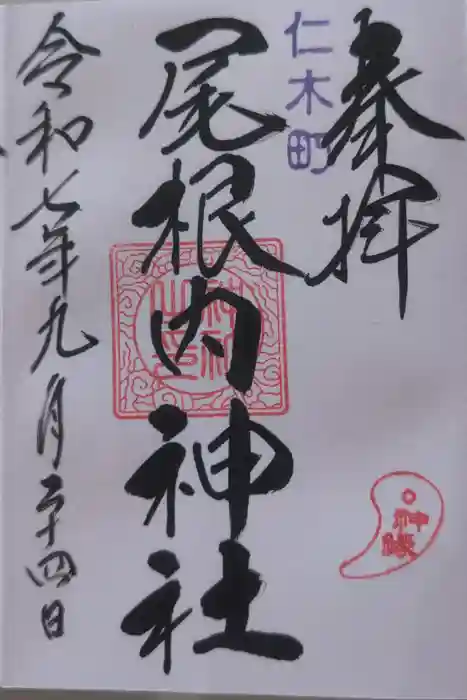 奉拝
仁木町
尾根内神社
神社之印
神縁
令和七年九月二十四日